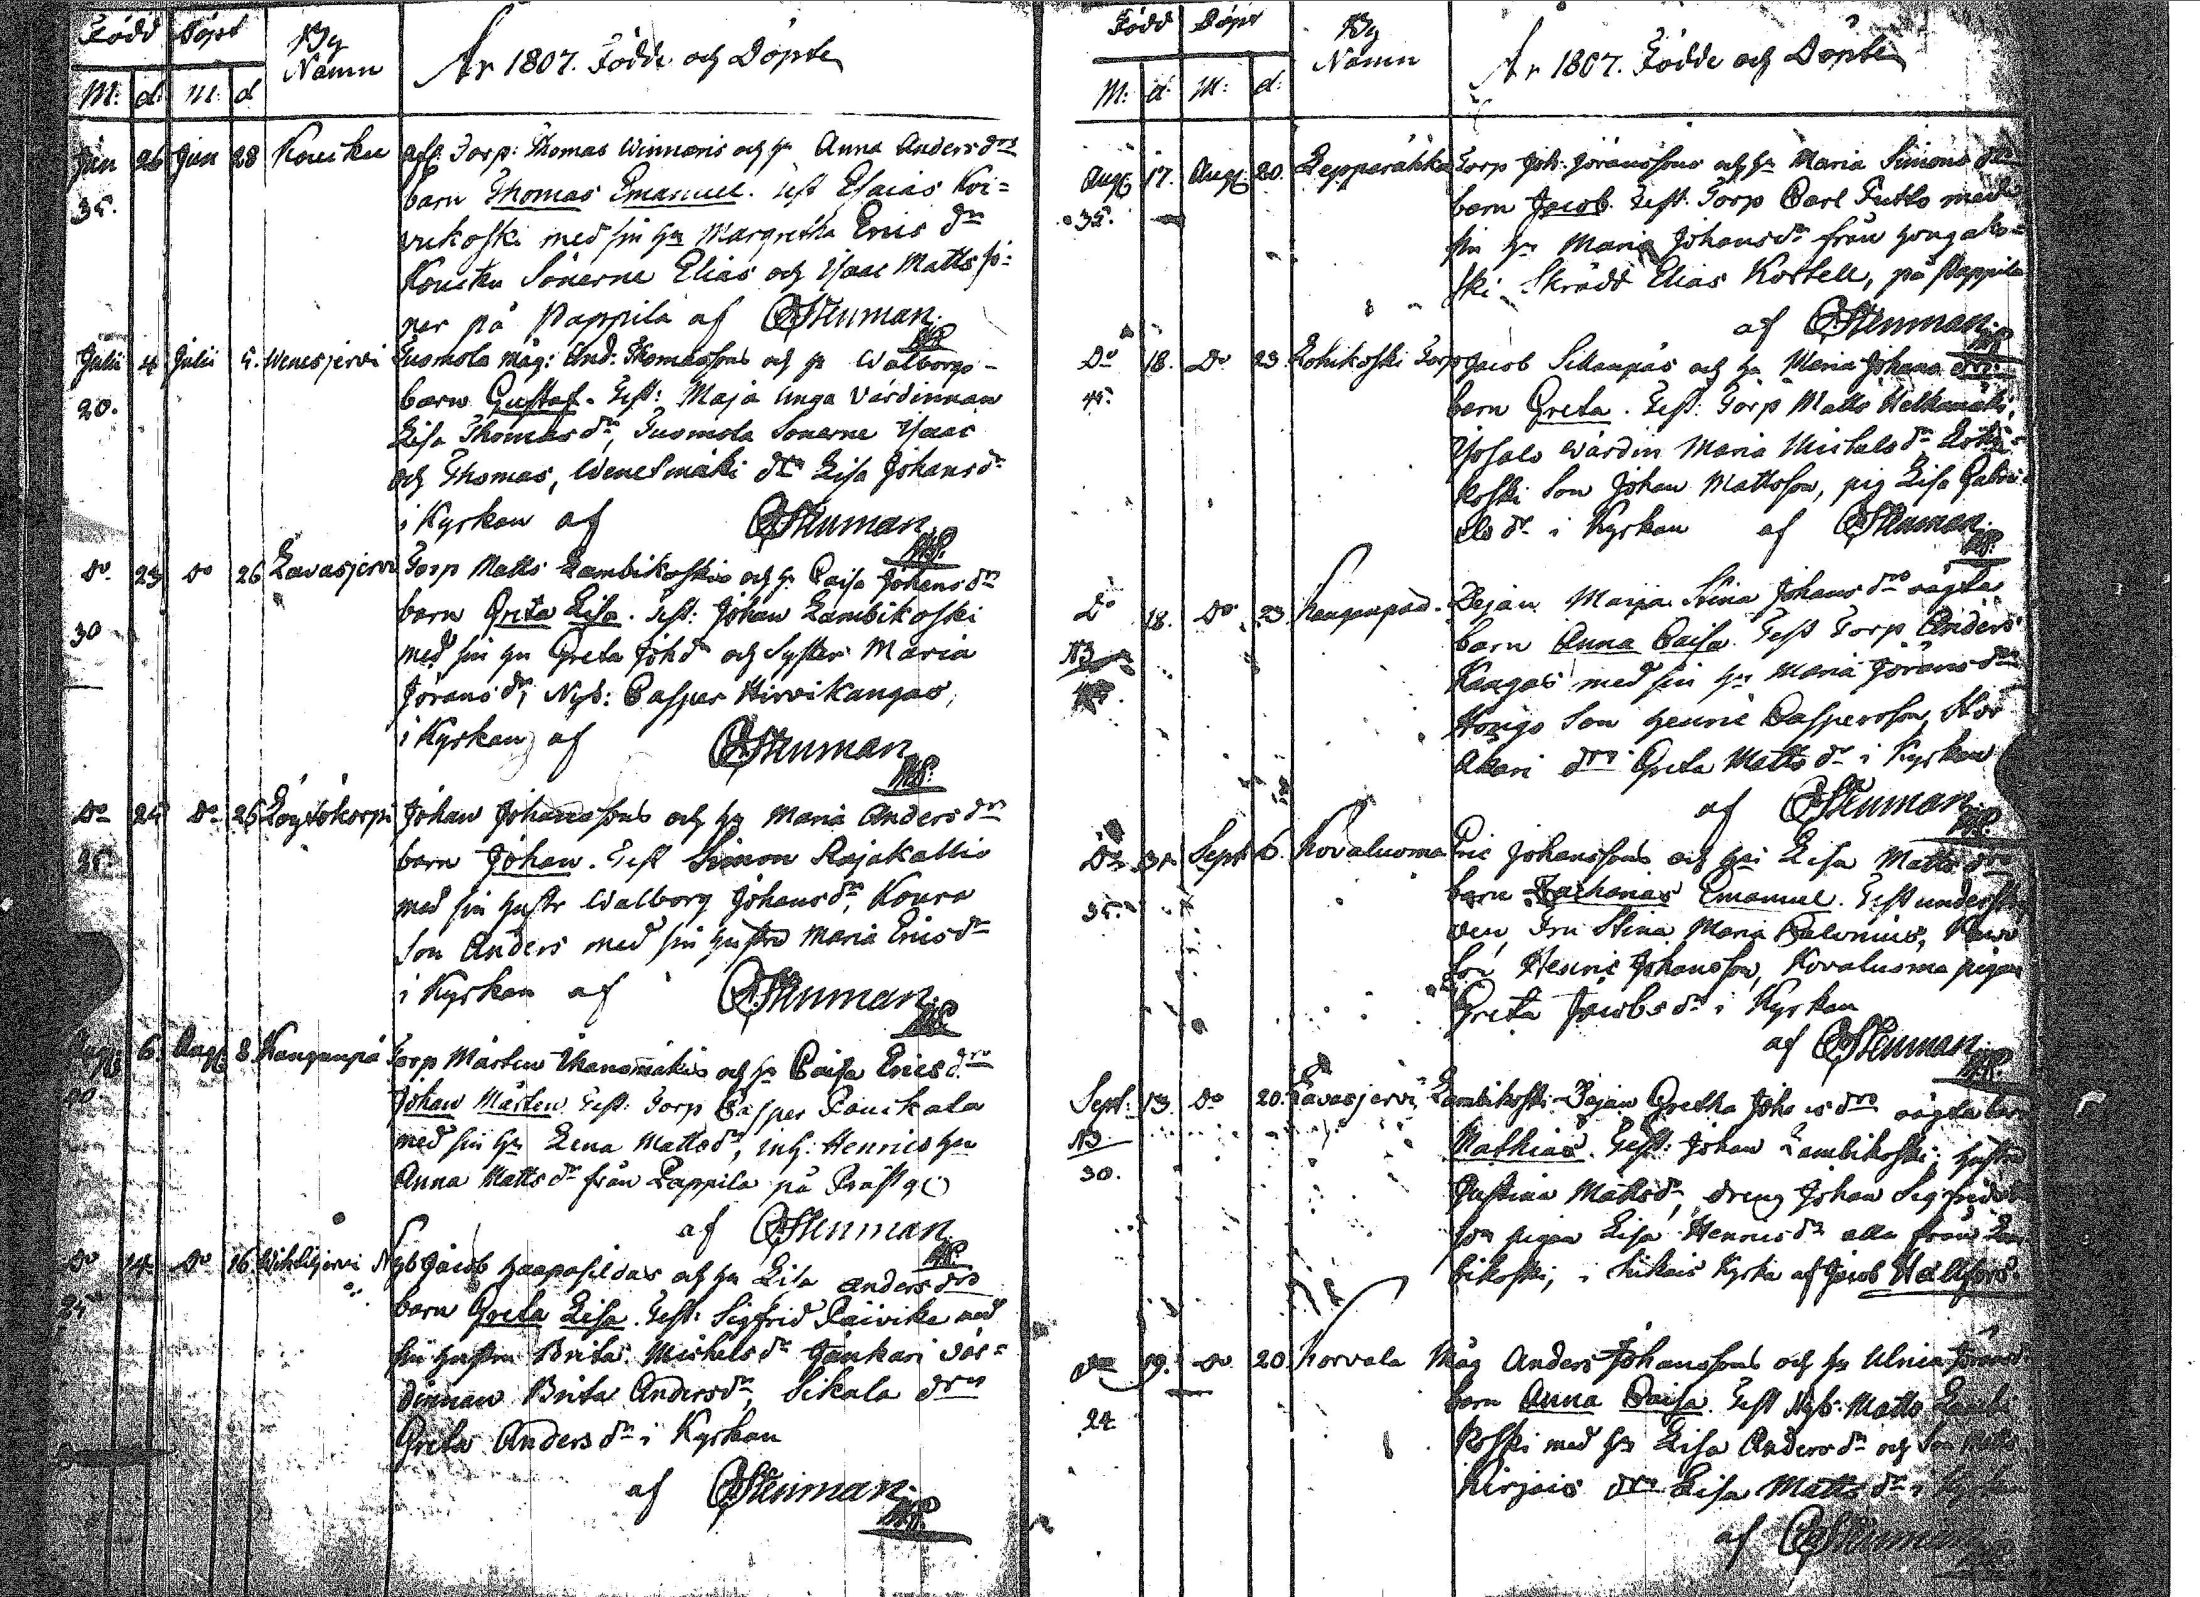 Född Döpt By Namn År 1807. Födde och Döpte
M: d: M: d
Jun 26 Jun 28 Kouiku afl. Torp: Thomas Winnaris och h: Anna Anders drs
35. barn Thomas Emanuel. Test Esaias Koi=
vukoski med sin hu Margretha Erics dr
Kouiku Sönerne Elias och Isaac Matts sö=
ner på Pappila af CStenman.
Julii 4 Julii 5. Wenesjervi Tuomola måg: And: Thomassons och h Walborgs
20. barn Gustaf. Test: Maja unga Värdinnan
Lisa Thomas dr, Tuomola Sönerne Isaac
och Thomas, Wenesmäki dr Lisa Johans dr
i Kyrkan af CStenman
Do 23 Do 26 Lavasjervi Torp Matts Lambikoskis och h: Caisa Johans drs
30 barn Greta Lisa. Test: Johan Lambikoski
med sin hu Greta Joh dr och Syster Maria
Jörans dr, Nyb: Casper Hirvikangas,
i Kyrkan af CStenman
Do 24 Do 26 Löytökorpi Johan Johanssons och hu Maria Anders drs
35. barn Johan. Test Simon Rajakallio
med sin hustr Walborg Johans dr, Koura
Son Anders med sin hustru Maria Erics dr
i Kyrkan af CStenman
Aug: 6. Aug 8 Kanganpä Torp Mårten Ikanomäkis och h Caisa Erics drs
Johan Mårten Test: Torp Casper Panikala
med sin hu Lena Matts dr, inh: Henrics hu
Anna Matts dr från Pappila på Prästg
af CStenman
Do 14 Do 16 Wihtijervi Nyb Jacob Haapasildas och hu Lisa Anders drs
barn Greta Lisa. Test: Sigfrid Päivike med
sin hustru Brita Michels dr Jänkari Vär=
dinnan Brita Anders dr, Sikala drn
Greta Anders dr i Kyrkan
af CStenman
Född Döpt By Namn År 1807. Födde och Döpte
M: d: M: d:
Aug: 17. Aug 20. Lepparähka Torp Joh: Jöranssons och hu Maria Simons drs
35. barn Jacob. Test. Torp Carl Putto med
sin hu Maria Johans dr från Hongako=
ski Skrädd Elias Kortell, på Pappila
af CStenman
Do 18. Do 23. Lohikoski Torp Jacob Sillanpäs och hu Maria Johans drs
45. barn Greta. Test: Torp Matts
Wärdin Maria Michels dr
koski Son Johan Mattsson, pig Lisa Gabri=
els dr i Kyrkan af CStenman.
Do 18. Do 23 Kanganpää. Pejan Maija Stina Johans drs oägta
barn Anna Caisa Test Torp Anders
Kangas med sin hu Maria Jörans dr
Hongo Son Henric Caspersson, Stor
Akari drn Greta Matts dr i Kyrkan
af CStenman
Do 31. Sept 6. Kovaluoma Eric Johanssons och hu: Lisa Matts drs
35. barn Zacharias Emanuel. Test
Fru Stina Maria
Son Henric Johansson, Kovaluoma pigan
Greta Jacobs dr i Kyrkan
af CStenman
Sept: 13. Do 20. Lavasjervi Lambikoski Pejan Gretha Johans drs oägta barn
30. Mathias. Test: Johan Lambikoski, hustru
Justina Matts dr, dreng Johan Sigfrids
son pigan Lisa Henrics dr alla från Lam
bikoski, i Kyrka af Jacob Hällfors.
Do 19. Do 20 Korvala Måg Anders Johanssons och hu Ulrica Jörans
24 barn Anna Caisa. Test Nyb: Matts Lambi
koski med hu Lisa Anders dr och Son Matts
drn Lisa Matts dr i Kyrkan
af CStenman